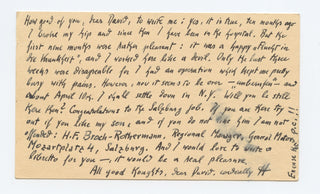 How good of you, dear David, to write me: yes, it is true, ten months ago
I broke my hip and since then I have been in the hospital. But the
first nine months were rather pleasant: it was a happy "flucht in
die Krankheit", and I worked here like a devil. Only the last three
weeks were disagreeable for I had an operation which kept me pretty
busy with pains. However, now it seems to be over — "unberufen" — and
about April 1st, I shall settle down in N.Y. Will you be still
here then? Congratulations to the Salzburg job. If you are there try
out of you like my son; and if you do not like him I am not
offended: H.F. Broch-Rothermann, Regional Manager, General Motors,
Mozartplatz 4, Salzburg. And I would love to write a
libretto for you —, it would be a real pleasure.
All good thoughts, dear David, cordially H
Excuse the p.c.!!